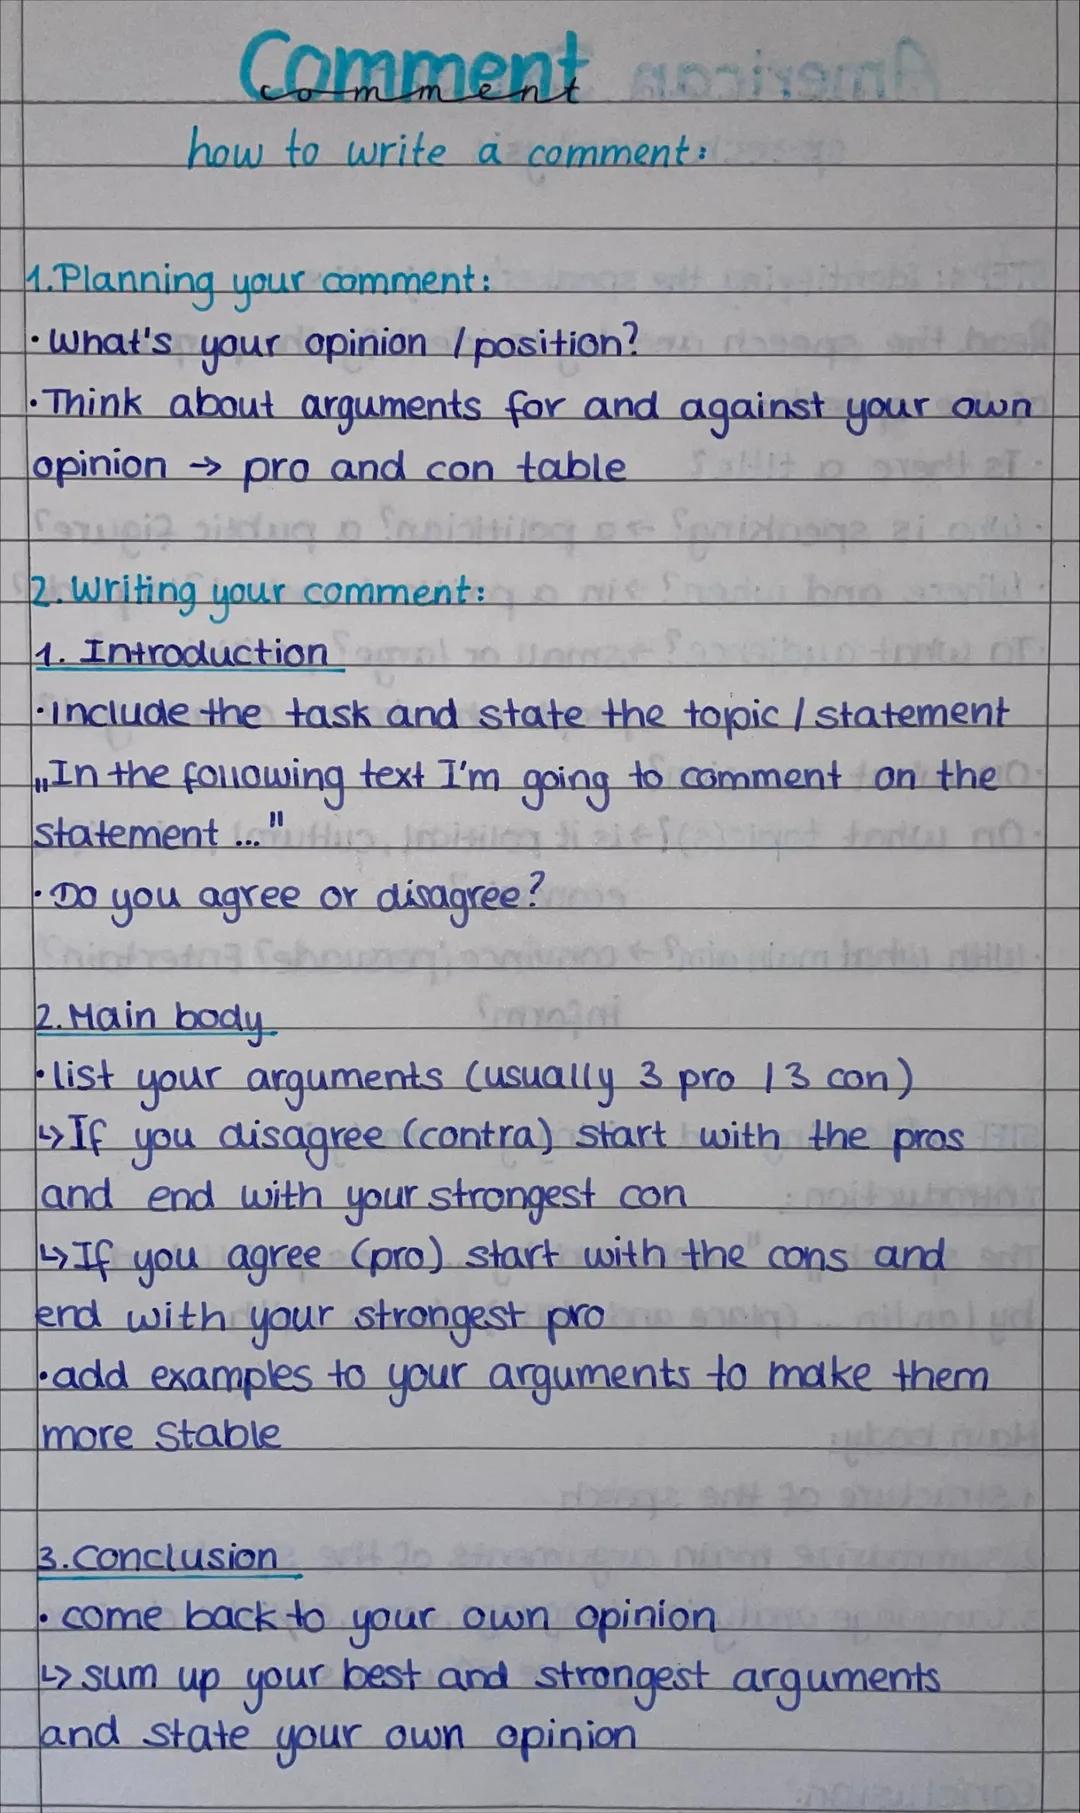 Comment
comment
how to write a comment:
1. Planning your comment:
· What's your opinion / position?
· Think about arguments for and against your own
opinion → pro and con table
2. Writing your comment:
1. Introduction
· include the task and state the topic / statement
„In the following text I'm going to comment on the
statement ..."
· Do you agree or disagree?
2. Main body
· list your arguments (usually 3 pro / 3 con)
↳ If you disagree (contra) start with the pros
and end with your strongest con
↳ If you agree (pro) start with the cons and
end with your strongest pro
· add examples to your arguments to make them
more stable
3. Conclusion
· come back to your own opinion
↳ sum up your best and strongest arguments
and state your own opinion